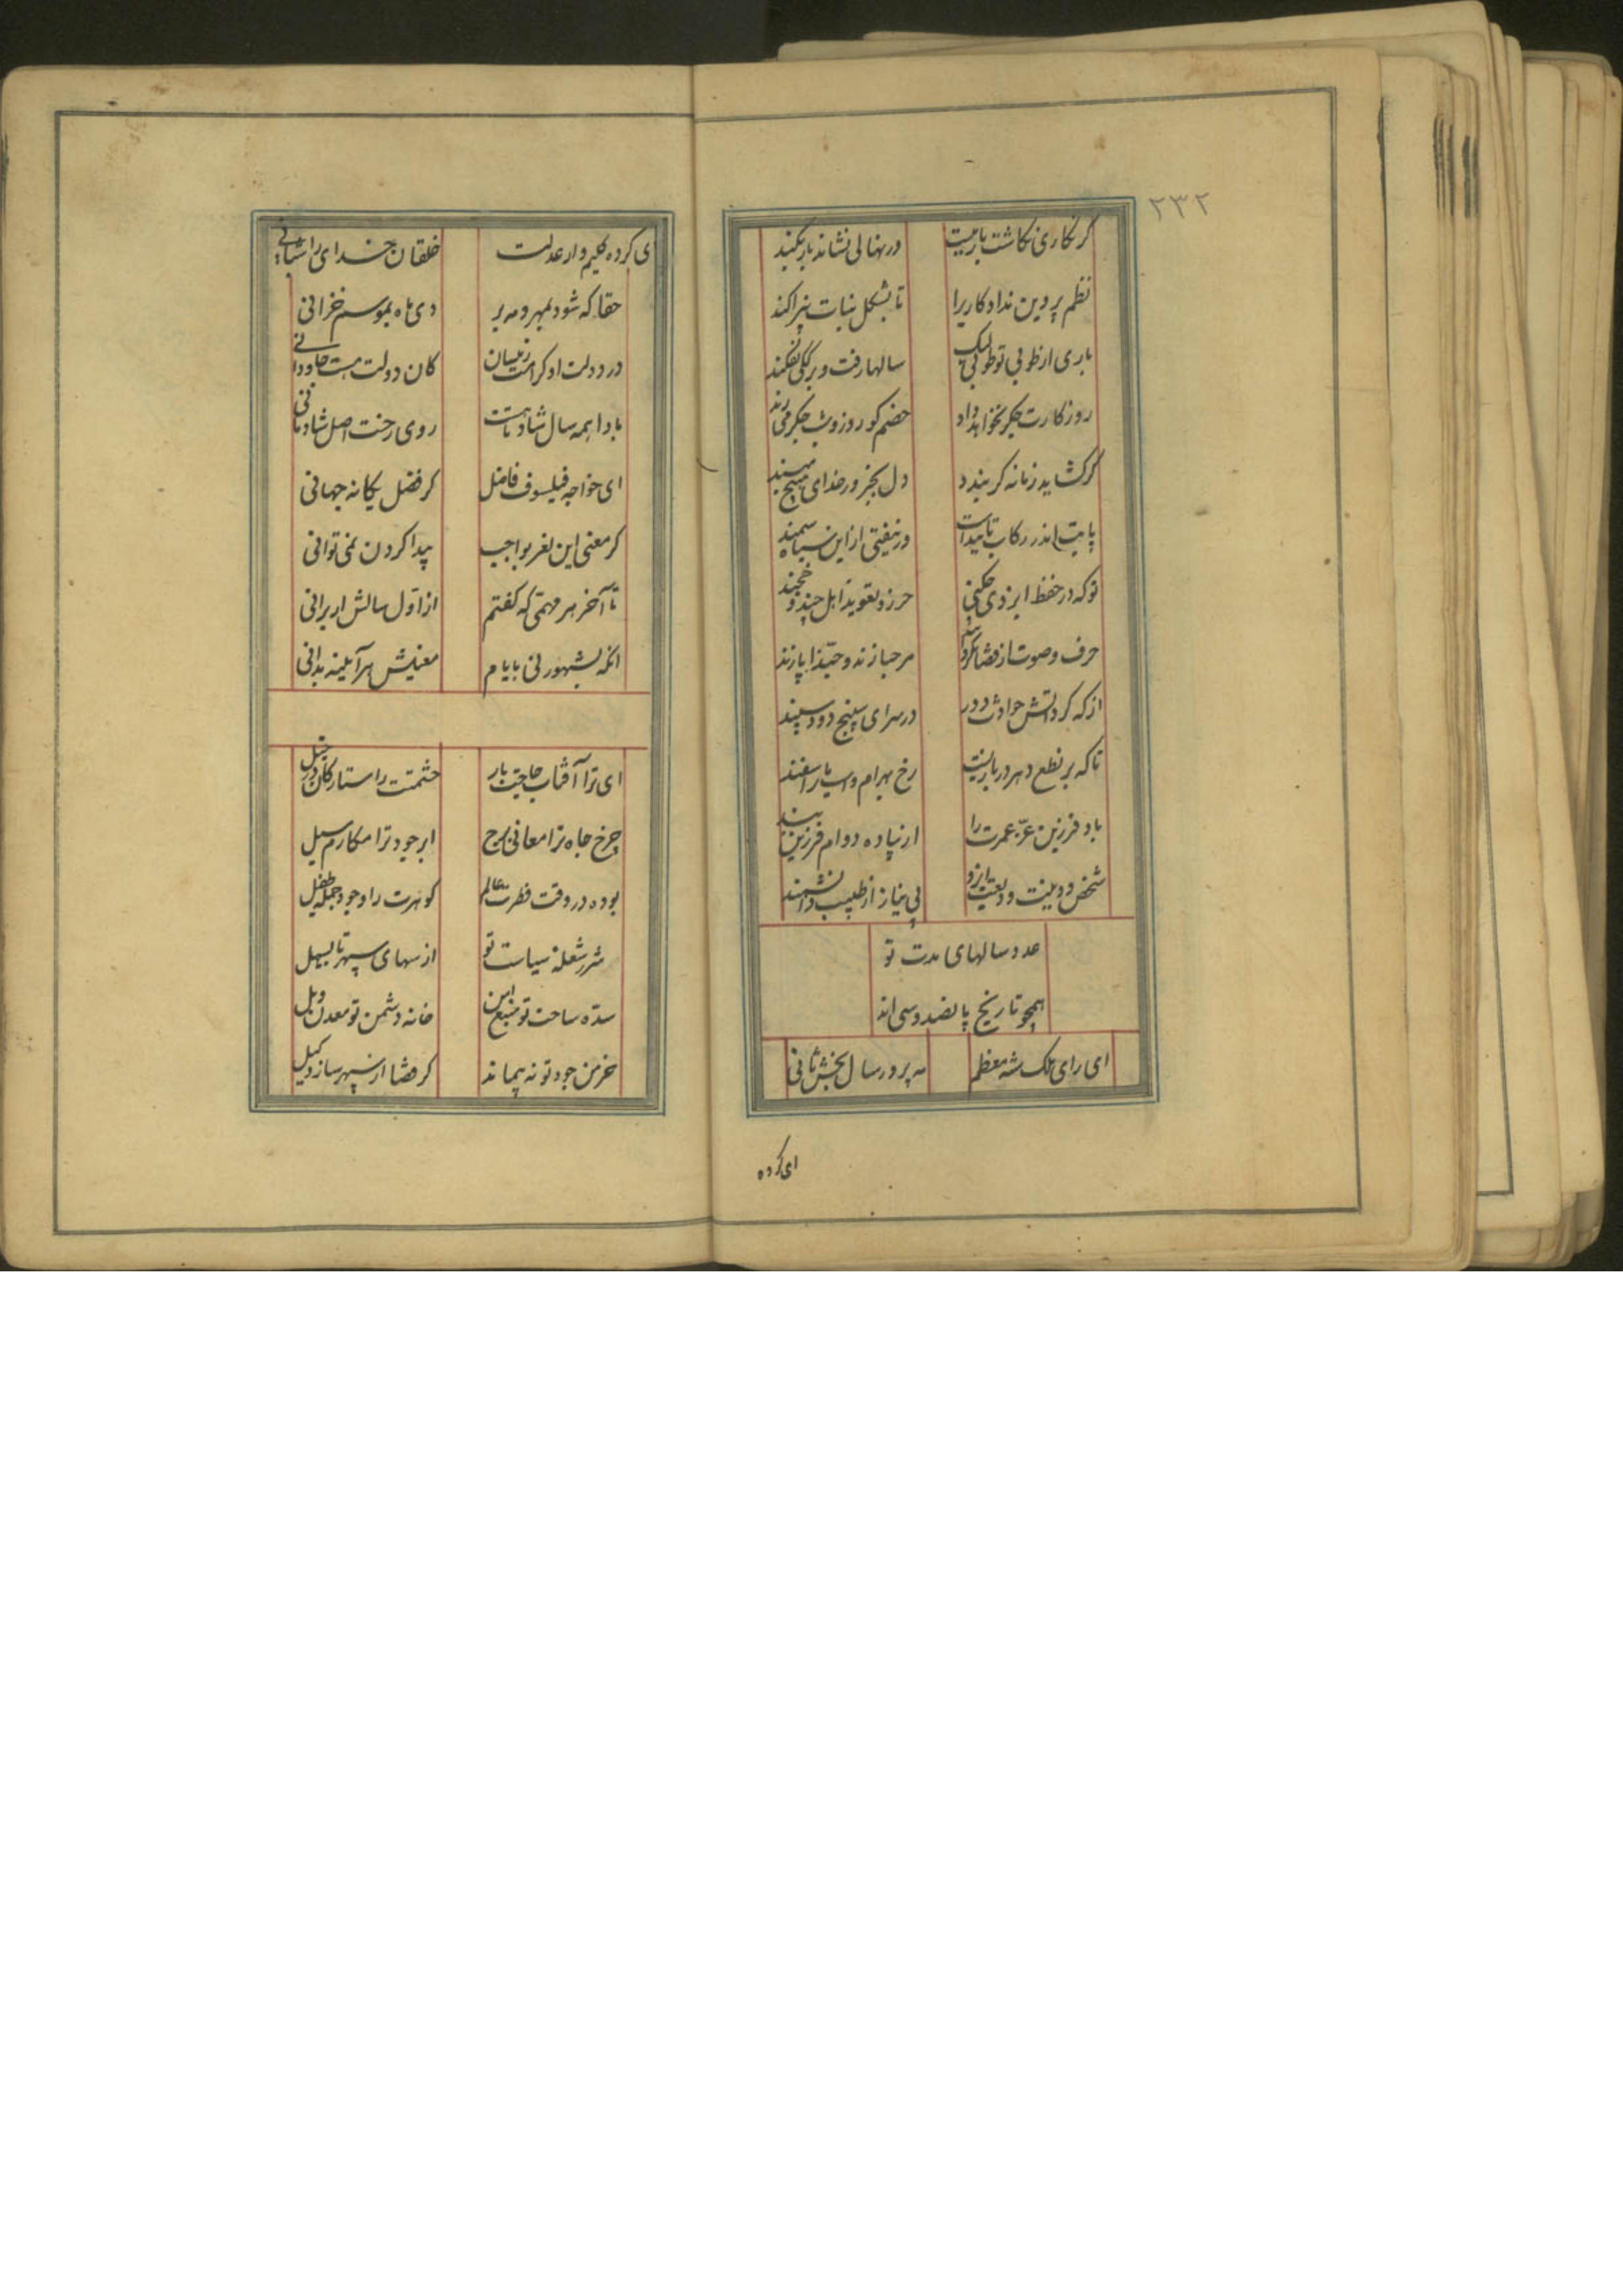 ۲۳۲
گر نکاری نکاشت باز نیست ور نهالی نشاند باز نکند
نظم پروین نداد کاریرا تا بشکل بنات نپراکند
باری از طوبی تو طوبی لک سالها رفت و برگکی نفکند
روزگارت جگر نخواهد داد خصم کو روز و شب جگر می رند
گر گشاید زمانه گر بندد دل بجز در خدای هیچ مبند
پایت اندر رکاب تاییدست
تو که در حفظ ایزدی چکنی حرز و تعویذ اهل جند و خجند
حرف و صوت ار قضا بگرداند مرحبا زند و حبذا پازند
از که گرد آتش حوادث دور در سرای سپنج دود سپند
تا که بر نطع دهر در بازیست رخ بهرام و اسب یا راسفند
باد فرزین عز عمرت را از پیاده دوام فرزین بند
شخص و دینت ودیعت ایزد بی نیاز از طبیب و دانشمند
عدد سالهای مدت تو
همچو تاریخ پانصد و سی اند
ای رای ملک شه معظم مه پرور سال بخش ثانی
ای کرده
ای کرده کلیم وار عدلت خلقان خدای را شبانی
حقا که شود بمهر و مه بر دی ماه بموسم خزانی
در دولت او کرامتت زینسان کان دولت هست جاودانی
بادا همه سال شاد روی رخت اصل شادمانی
ای خواجه فیلسوف فاضل کز فضل یگانه جهانی
گر معنی این لغز بواجب پیدا کردن نمی توانی
تا آخر هر مهمتی که گفتم از اول سالش ار برانی
آنگه بشهور نی بایام معنیش هر آینه بدانی
ای ترا آفتاب حاجب بار حشمتت را ستارگان در خیل
چرخ جاه ترا معانی برج ابر جود ترا مکارم سیل
بوده در وقت فطرت عالم گوهرت را وجود جمله طفیل
شرر شعله سیاست تو از سهای سپهر تا بسهیل
سده ساحت تو منبع امن خانه دشمن تو معدن ویل
خرمن جود تو نه پیماند گر قضا از سپهر سازد کیل